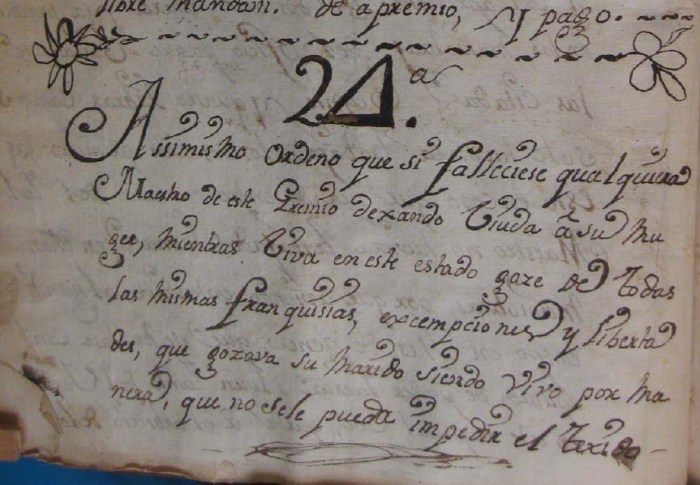 libre mandam. de apremio, y pago.
24.ª
Assimismo ordeno que si falleciese qualquiera
Maestro de este Gremio dexando Viuda â su Mu
ger, mientras Viva en este estado goze de todas
las mismas franquisias, excempciones y liberta
des, que gozava su marido siendo vivo por ma
nera, que no sele pueda impedir el texido